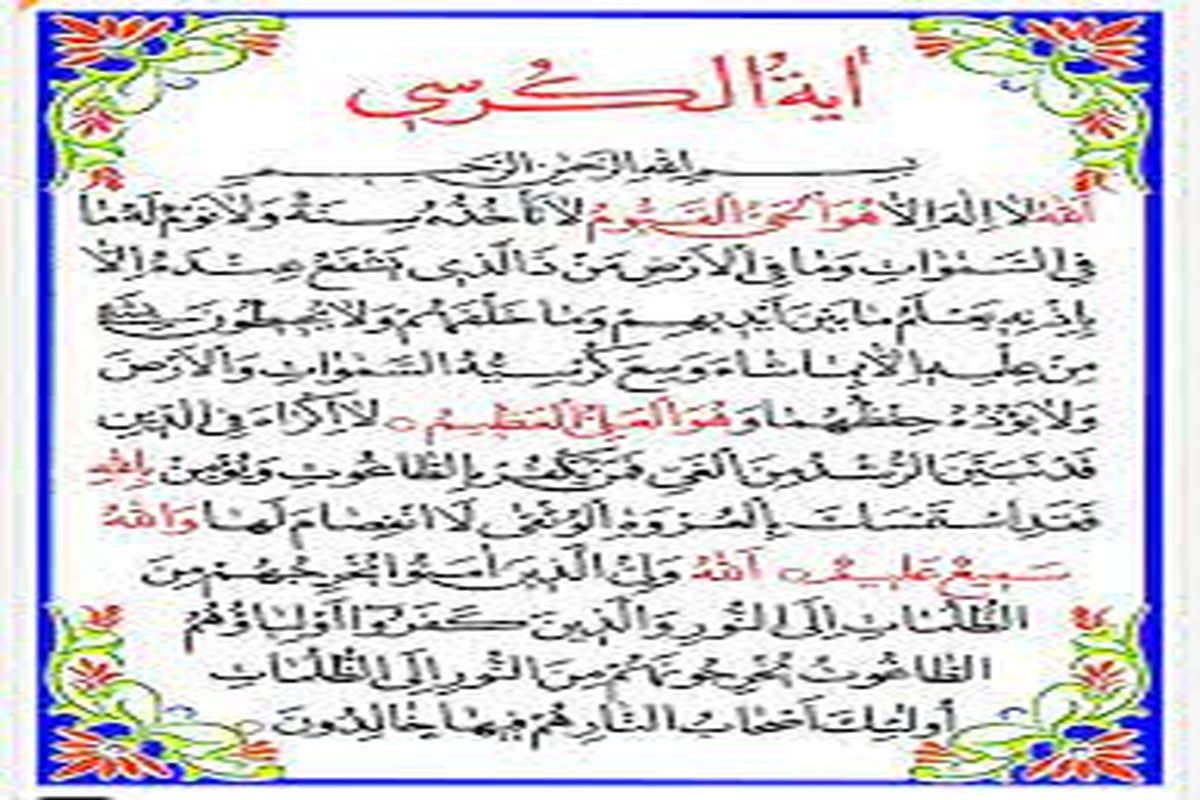 آية الكرسي
بسم الله الرحمن الرحيم
اَللّٰهُ لَا اِلٰهَ اِلَّا هُوَ اَلْحَيُّ الْقَيُّومُ لَا تَأْخُذُهُ سِنَةٌ وَلَا نَوْمٌ لَهُ مَا
فِي السَّمٰوَاتِ وَمَا فِي الْاَرْضِ مَنْ ذَا الَّذِي يَشْفَعُ عِنْدَهُ اِلَّا
بِاِذْنِهِ يَعْلَمُ مَا بَيْنَ اَيْدِيهِمْ وَمَا خَلْفَهُمْ وَلَا يُحِيطُونَ بِشَيْءٍ
مِنْ عِلْمِهِ اِلَّا بِمَا شَاءَ وَسِعَ كُرْسِيُّهُ السَّمٰوَاتِ وَالْاَرْضَ
وَلَا يَؤُدُهُ حِفْظُهُمَا وَهُوَ الْعَلِيُّ الْعَظِيمُ ○ لَا اِكْرَاهَ فِي الدِّينِ
قَدْ تَبَيَّنَ الرُّشْدُ مِنَ الْغَيِّ فَمَنْ يَكْفُرْ بِالطَّاغُوتِ وَيُؤْمِنْ بِاللّٰهِ
فَقَدِ اسْتَمْسَكَ بِالْعُرْوَةِ الْوُثْقٰى لَا انْفِصَامَ لَهَا وَاللّٰهُ
سَمِيعٌ عَلِيمٌ ○ اَللّٰهُ وَلِيُّ الَّذِينَ اٰمَنُوا يُخْرِجُهُمْ مِنَ
الظُّلُمَاتِ اِلَى النُّورِ وَالَّذِينَ كَفَرُوا اَوْلِيَاؤُهُمُ
الطَّاغُوتُ يُخْرِجُونَهُمْ مِنَ النُّورِ اِلَى الظُّلُمَاتِ
اُولٰئِكَ اَصْحَابُ النَّارِ هُمْ فِيهَا خَالِدُونَ ○